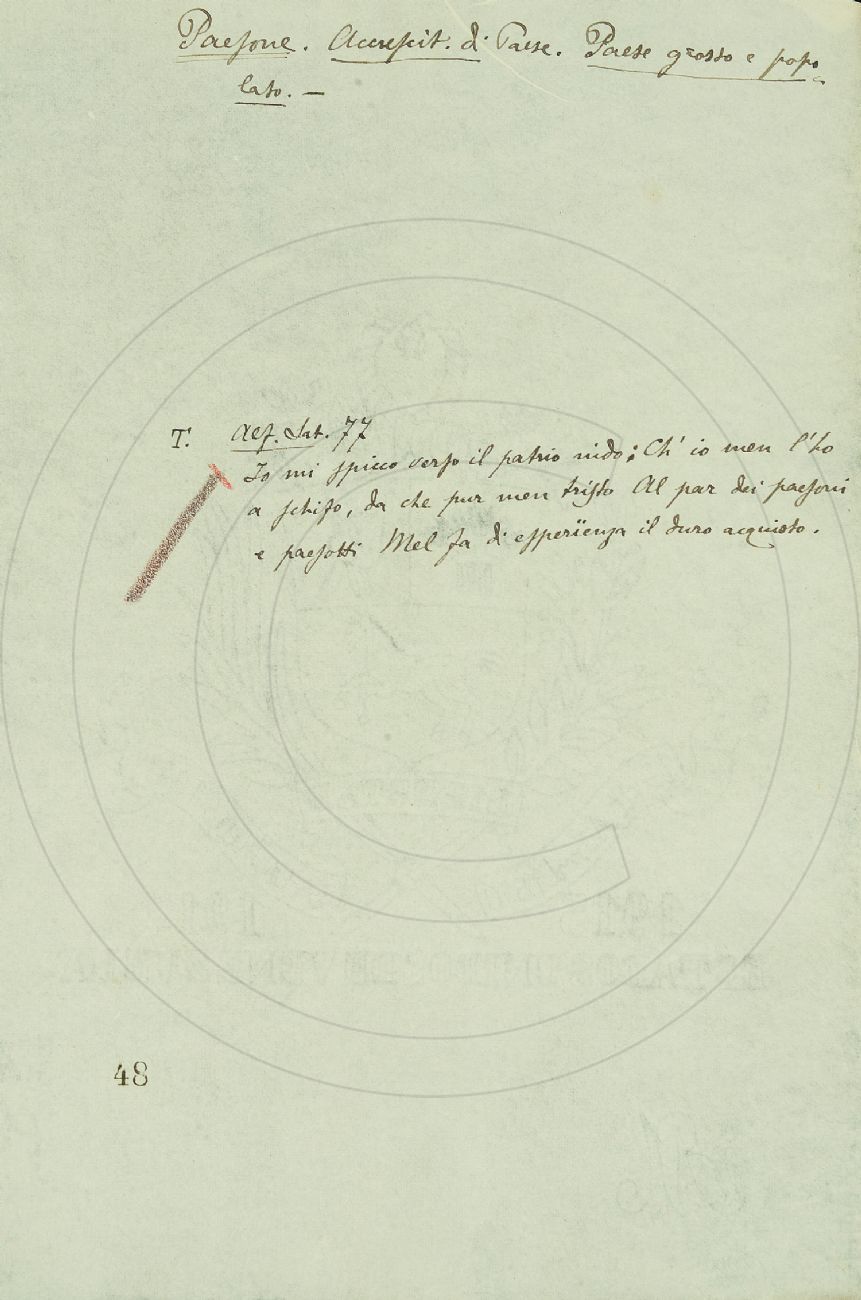 Paesone. Accrescit. di Paese. Paese grosso e popo-
lato. —
T. Alf. Sat. 77
Io mi spicco verso il patrio nido; Ch' io men l'ho
a schifo, da che pur men tristo Al par dei paesoni
e paesotti Mel fa di esperïenza il duro acquisto.
48